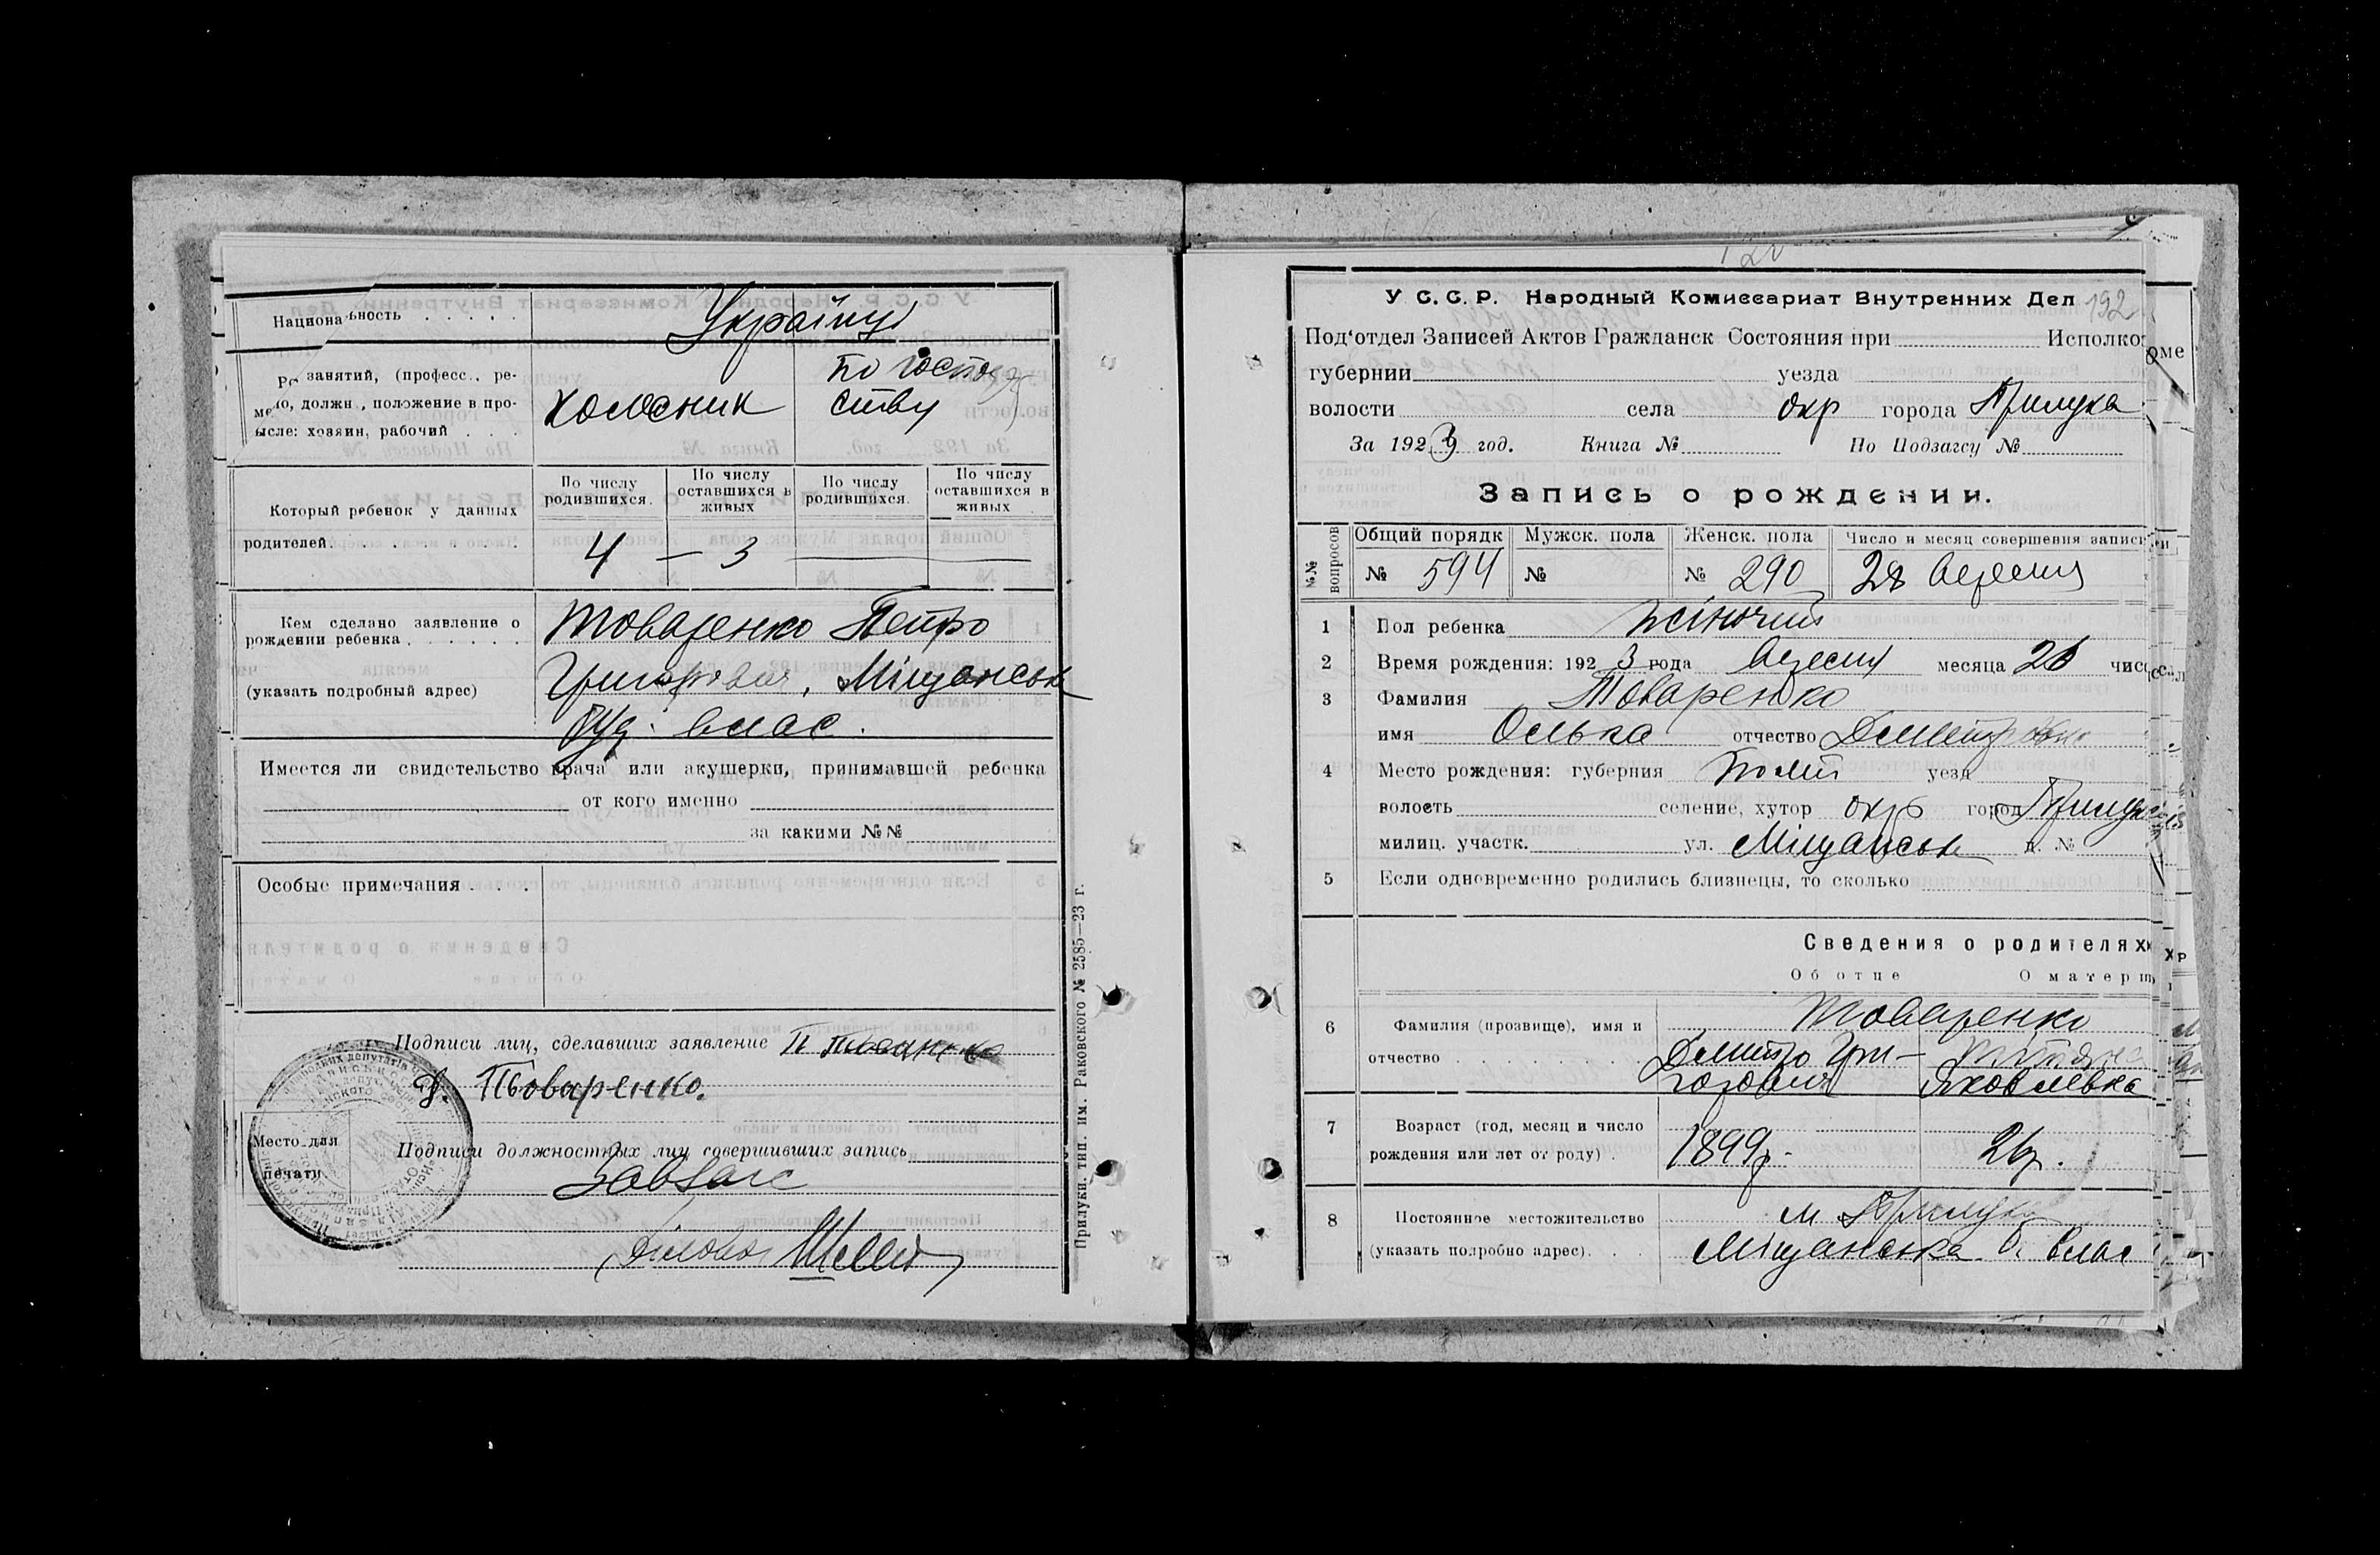 Национальность . . . . .
Українці
Ро занятий, (професс., ре-
мело, должн., положение в про-
мысле: хозяин, рабочий . . .
колесник
по госпо
ству
Который ребенок у данных
родителей . . . . . . .
По числу родившихся.
По числу оставшихся в живых
По числу родившихся.
По числу оставшихся в живых
4 — 3
Кем сделано заявление о
рождении ребенка . . . . . .
(указать подробный адрес)
Товаренко Петро
Григорович, Міщанськ
буд. влас.
Имеется ли свидетельство врача или акушерки, принимавшей ребенка
от кого именно
за какими №№
Особые примечания . . .
Подписи лиц, сделавших заявление
Товаренко.
Место для
печати
Подписи должностных лиц совершивших запись
Завзагс
Діловод
Прилуки, тип. им. Раковского № 2585—23 г.
192
У С. С. Р. Народный Комиссариат Внутренних Дел
Под'отдел Записей Актов Гражданск Состояния при Исполкоме
губернии уезда
волости села окр города Прилука
За 1923 год. Книга № По Подзагсу №
Запись о рождении.
№№ вопросов
Общий порядк Мужск. пола Женск. пола Число и месяц совершения записи
№ 594 № № 290 28 вересня
1 Пол ребенка жіночий
2 Время рождения: 1923 года вересня месяца 26 числ
3 Фамилия Товаренко
имя Олька отчество Дмитровна
4 Место рождения: губерния Полт уезд
волость селение, хутор окр город Прилука
милиц. участк. ул. Міщанськ д. №
5 Если одновременно родились близнецы, то сколько
Сведения о родителях
Об отце О матери
6 Фамилия (прозвище), имя и
отчество . . . . . . .
Товаренко
Дмитро Гри-
горович
Яковлевна
7 Возраст (год, месяц и число
рождения или лет от роду) .
1899р. 26р.
8 Постоянное местожительство
(указать подробно адрес). . .
м Прилука
Міщанська б. влас